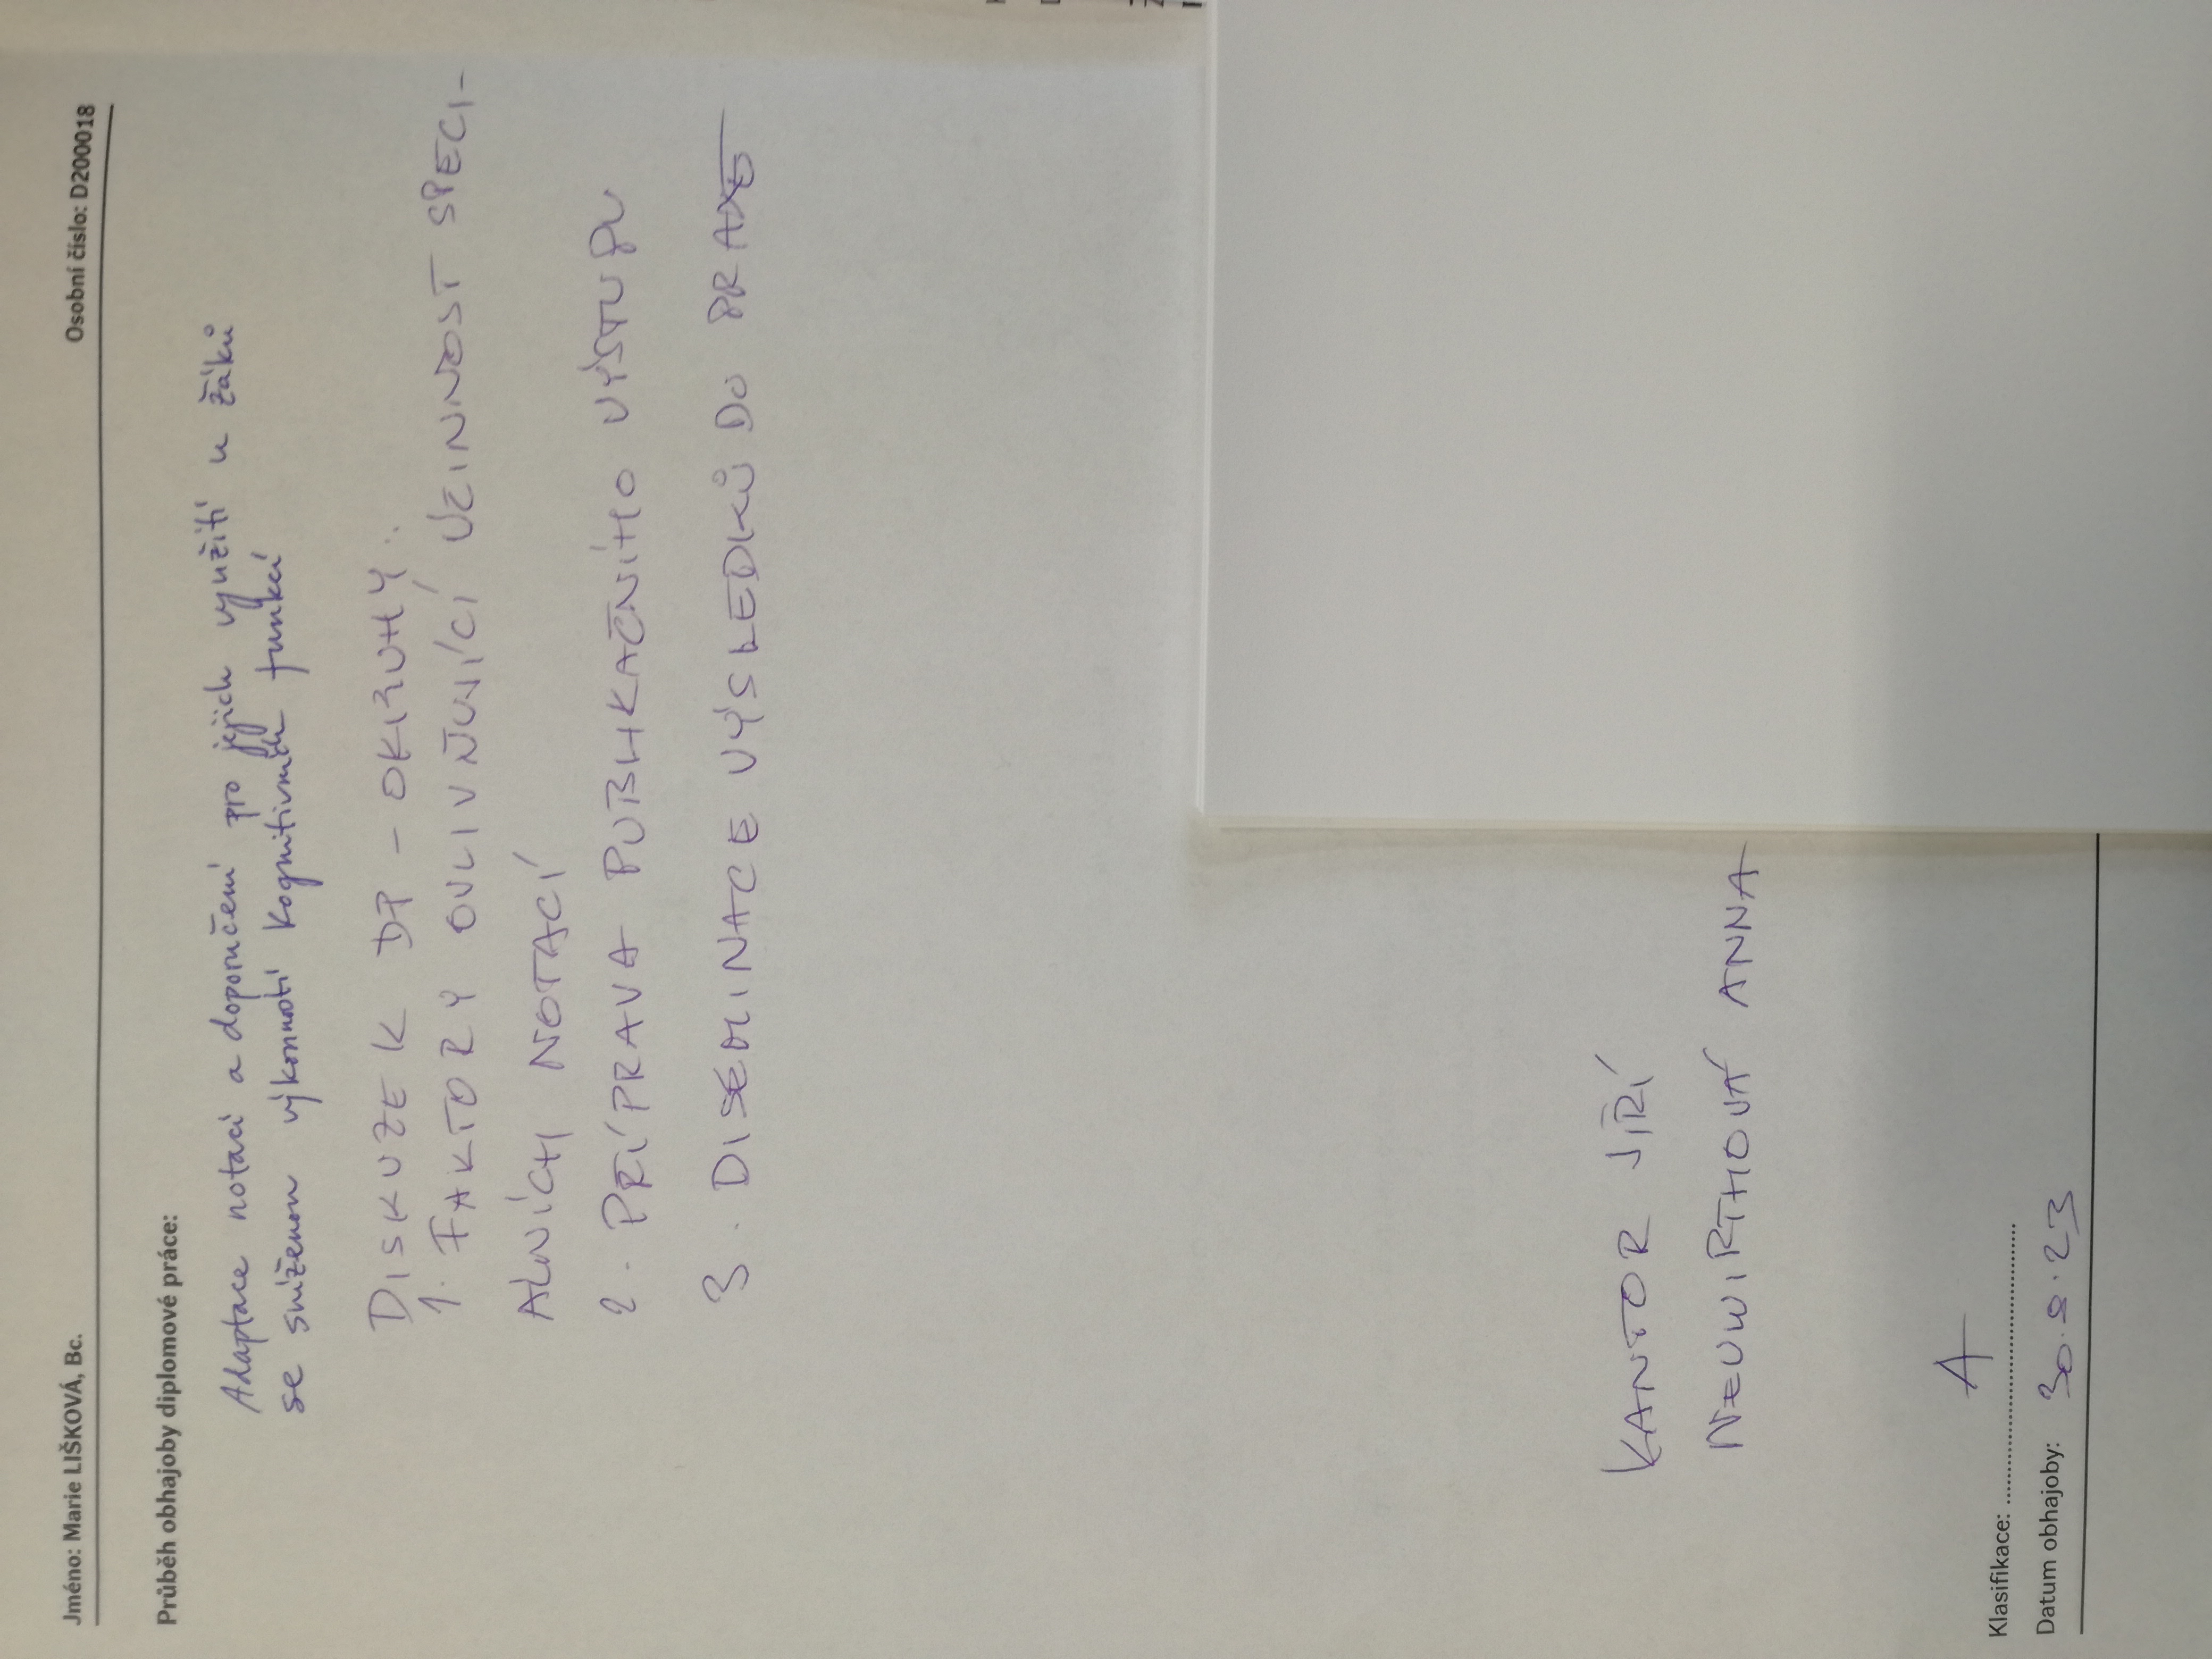 Jméno: Marie LIŠKOVÁ, Bc. Osobní číslo: D200018
Průběh obhajoby diplomové práce:
Adaptace notací a doporučení pro jejich využití u žáků
se sníženou výkonností kognitivních funkcí
DISKUZE K DP - OKRUHY:
1. FAKTORY OVLIVŇUJÍCÍ ÚČINNOST SPECI-
ÁLNÍCH NOTACÍ
2. PŘÍPRAVA PUBLIKAČNÍHO VÝSTUPU
3. DISEMINACE VÝSLEDKŮ DO PRAXE
KANTOR JIŘÍ
NEUWIRTHOVÁ ANNA
Klasifikace: A
Datum obhajoby: 30.8.23